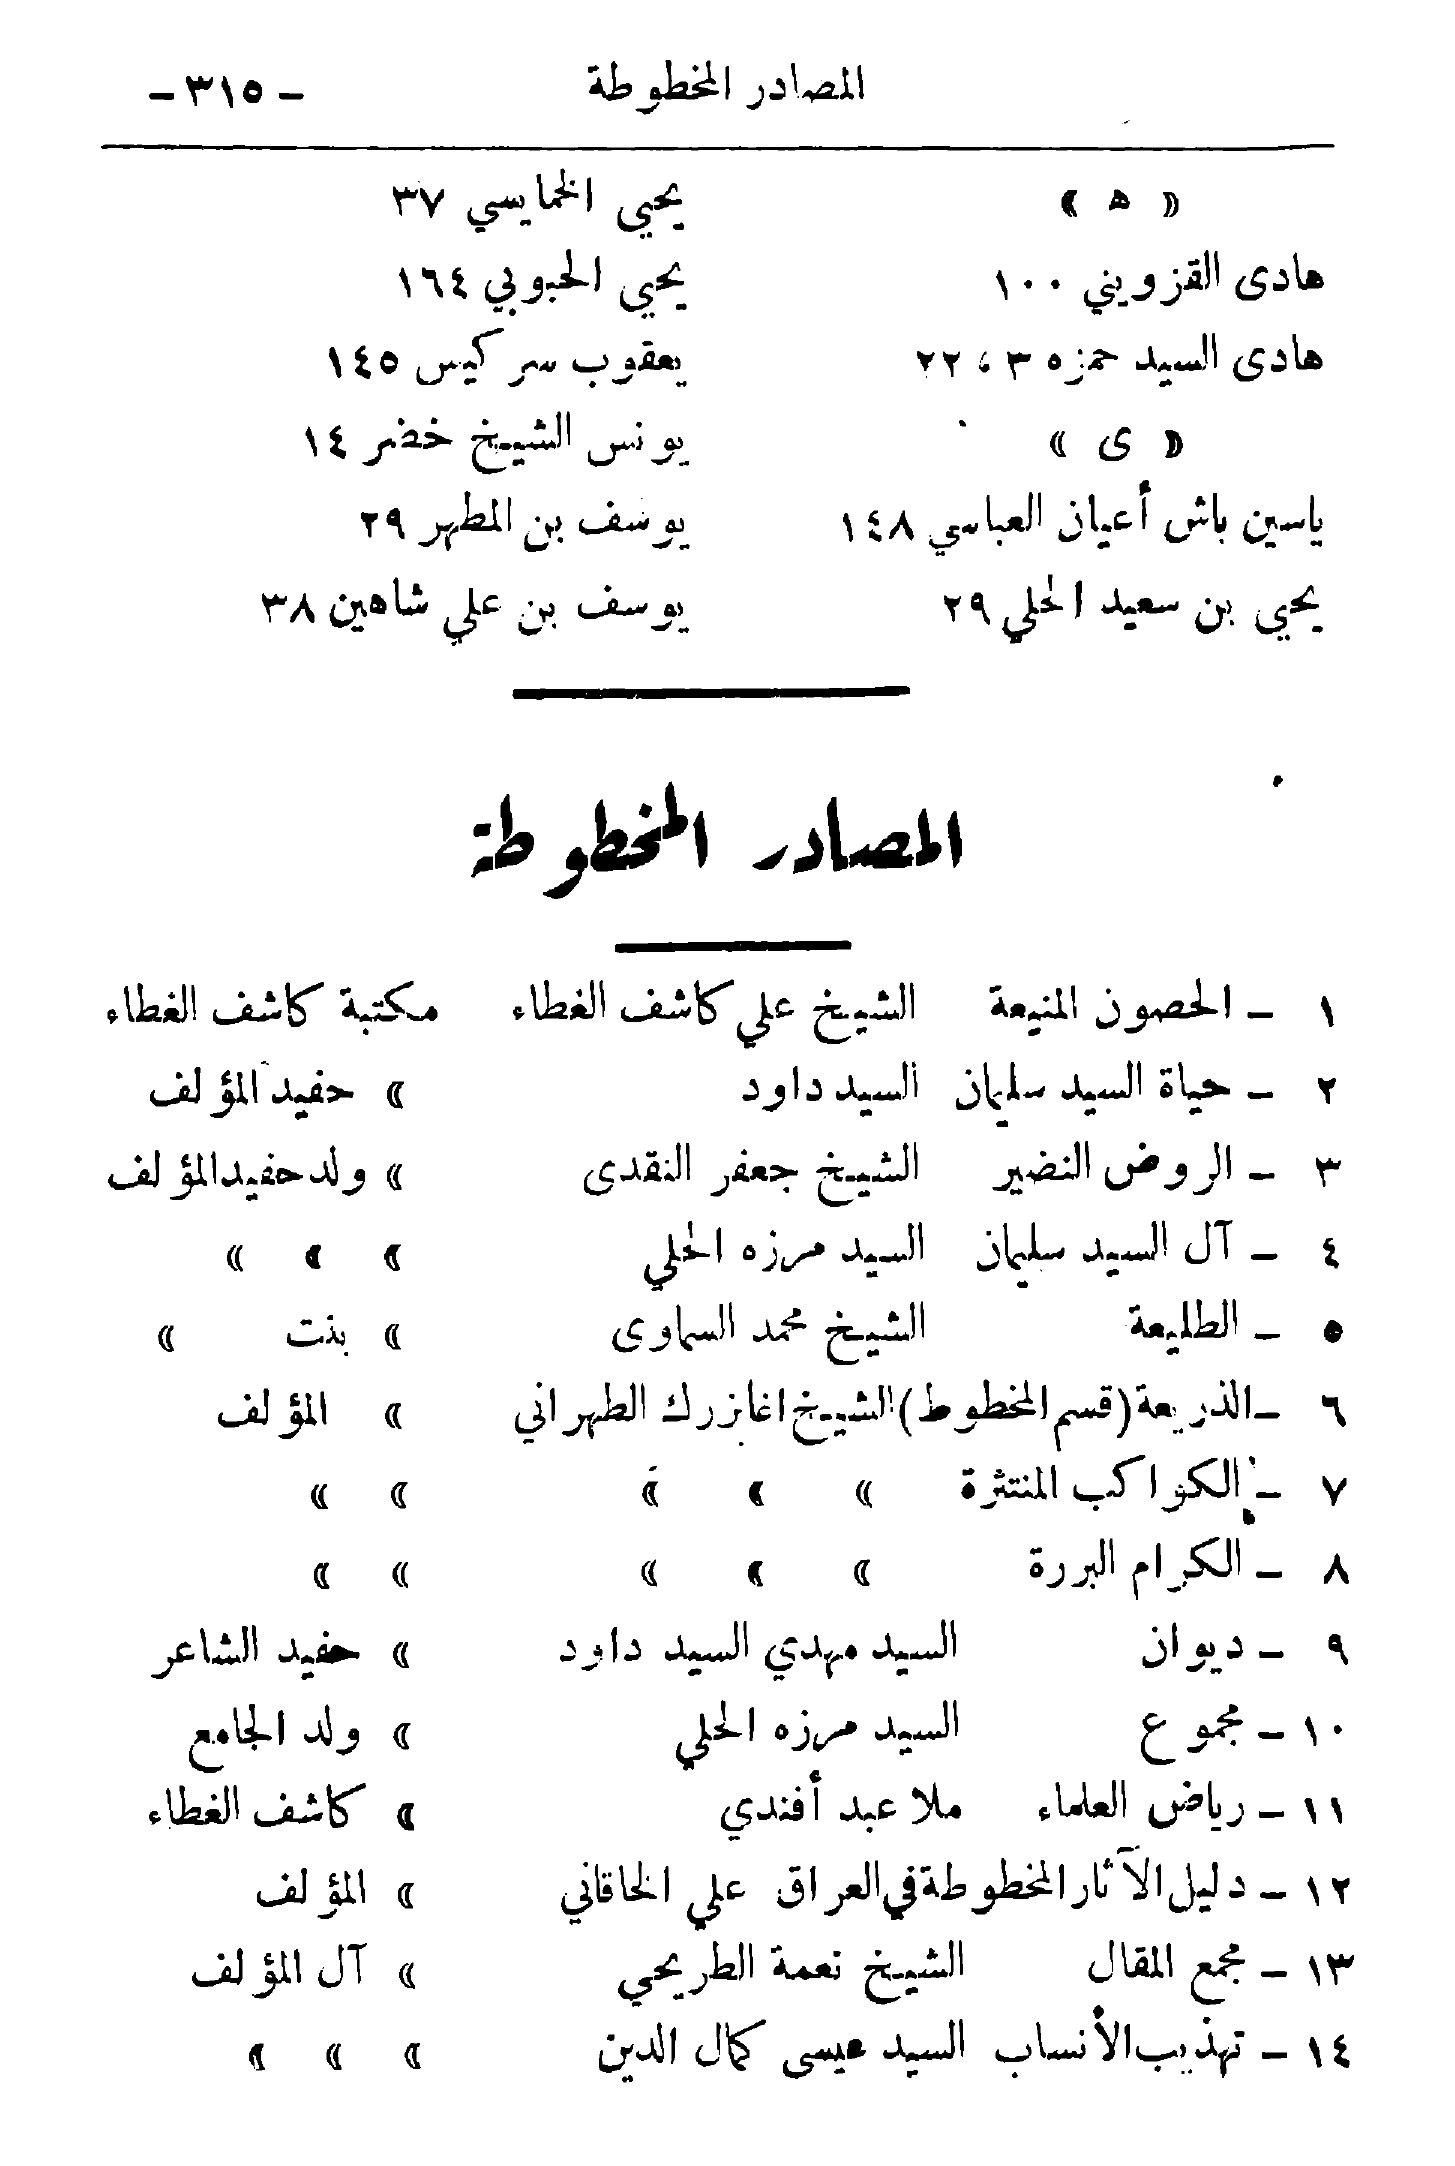 المصادر المخطوطة - ٣١٥ -
« ه »
هادى القزويني ١٠٠
هادى السيد حمزه ٣ ، ٢٢
« ى »
ياسين باش أعيان العباسي ١٤٨
يحيي بن سعيد الحلي ٢٩
يحيي الخمايسي ٣٧
يحيي الحبوبي ١٦٤
يعقوب سركيس ١٤٥
يونس الشيخ خضر ١٤
يوسف بن المطهر ٢٩
يوسف بن علي شاهين ٣٨
المصادر المخطوطة
١ - الحصون المنيعة الشيخ علي كاشف الغطاء مكتبة كاشف الغطاء
٢ - حياة السيد سليمان السيد داود » حفيد المؤلف
٣ - الروض النضير الشيخ جعفر النقدى » ولد حفيد المؤلف
٤ - آل السيد سليمان السيد مرزه الحلي » » »
٥ - الطليعة الشيخ محمد السماوى » بنت »
٦ - الذريعة (قسم المخطوط) الشيخ اغا بزرك الطهراني » المؤلف
٧ - الكواكب المنتثرة » » » » »
٨ - الكرام البررة » » » » »
٩ - ديوان السيد مهدي السيد داود » حفيد الشاعر
١٠ - مجموع السيد مرزه الحلي » ولد الجامع
١١ - رياض العلماء ملا عبد أفندي » كاشف الغطاء
١٢ - دليل الآثار المخطوطة في العراق علي الخاقاني » المؤلف
١٣ - مجمع المقال الشيخ نعمة الطريحي » آل المؤلف
١٤ - تهذيب الأنساب السيد عيسى كمال الدين » » »